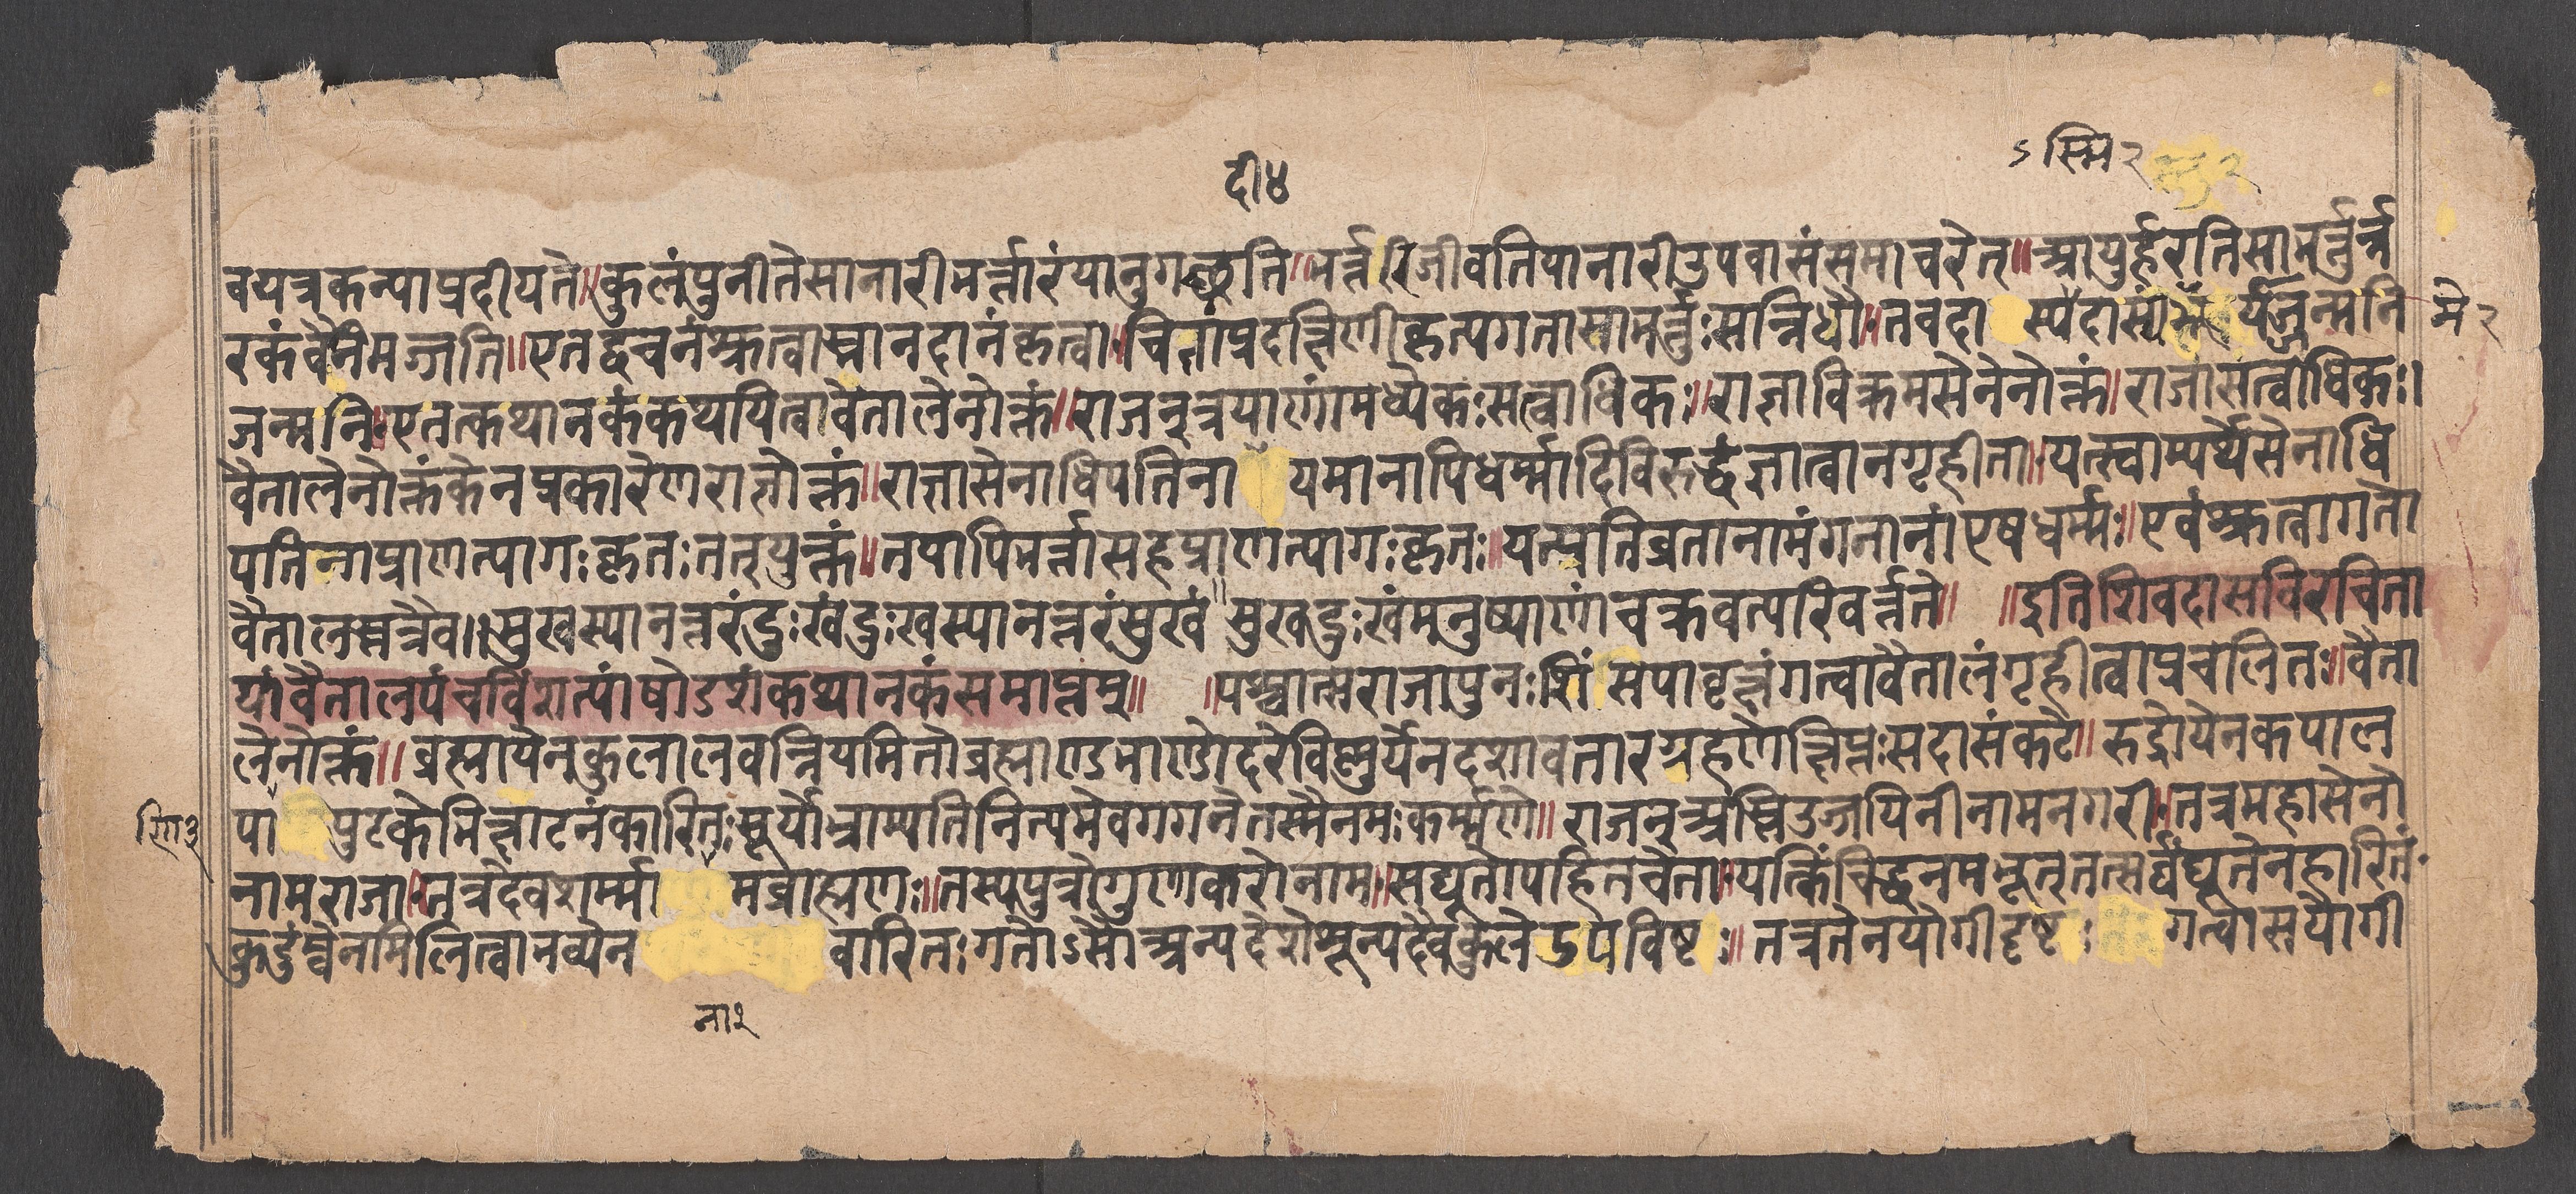 दी४
ऽस्मि २
वयत्रकन्याप्रदीयते॥कुलंपुनीतेसानारीभर्त्तारंयानुगच्छति॥भर्त्तरिजीवतियानारीउपवासंसमाचरेत्॥आयुर्हरतिसाभर्त्तुर्न्न
रकंचैनिमज्जति॥एतद्वचनंश्रुत्वास्नानदानंकृत्वा॥चितांप्रदक्षिणीकृत्यगतासाभर्त्तुःसन्निधौ॥तवदा स्येदास्यं र्यजन्मनि
मे २
जन्मनि॥एतत्कथानकंकथयित्वावेतालेनोक्तं॥राजन्त्रयाणांमध्येकःसत्वाधिकः॥राज्ञाविक्रमसेनेनोक्तं॥राजासत्वाधिकः।
वेतालेनोक्तंकेनप्रकारेणराज्ञोक्तं॥राज्ञासेनाधिपतिना यमानापिधर्म्मादिविरुद्धंज्ञात्वानगृहीता॥यत्स्वाम्यर्थेसेनाधि
पतिनाप्राणत्यागःकृतःतत्युक्तं॥तयापिभर्त्तासहप्राणत्यागःकृतः॥यत्प्रतिव्रतानामंगनानांएषधर्म्मः॥एवंश्रुत्वागतो
वेतालस्तत्रैव॥सुखस्यानन्तरंदुःखंदुःखस्यानन्तरंसुखं॥सुखदुःखंमनुष्याणांचक्रवत्परिवर्त्तते॥ ॥इतिशिवदासविरचिता
यांवेतालपंचविंशत्यांषोऽशंकथानकंसमाप्तम्॥ ॥पश्चात्सराजापुनःशिंसपावृक्षंगत्वावेतालंगृहीत्वाप्रचलितः॥वेता
लेनोक्तं॥ब्रह्मायेनकुलालवन्नियमितोब्रह्माण्डभाण्डोदरेविष्णुर्येनदशावतारग्रहणेक्षिप्तःसदासंकटे॥रुद्रोयेनकपाल
पा पुटकेभिक्षाटनंकारितःसूर्योभ्राम्यतिनित्यमेवगगनेतस्मैनमःकर्म्मणे॥राजन्अस्तिउज्जयिनीनामनगरी॥तत्रमहासेनो
णि३
नामराजा॥तत्रदेवशर्म्मा मब्राह्मणः॥तस्यपुत्रोगुणकरोनाम॥सद्यूतोपहितचेता॥यत्किंचिद्धनमभूत्तत्सर्वंद्यूतेनहारितं
कुटुंम्वेनमिलित्वाभव्येन वारितःगतोऽसौअन्यदेशेशून्यदेवकुलेउपविष्टः॥तत्रतेनयोगीदृष्टः गत्वासयोगी
ना१